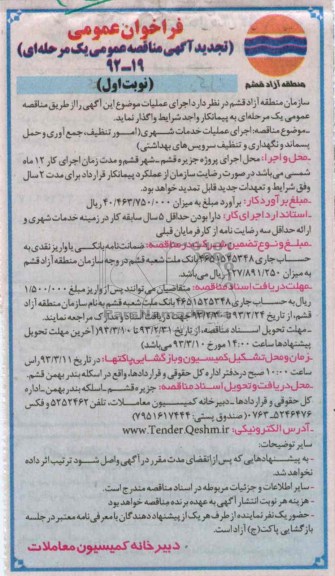 فراخوان عمومی
(تجدید آگهی مناقصه عمومی یک مرحله‌ای)
۹۲-۱۹
(نوبت اول)
منطقه آزاد قشم
سازمان منطقه آزاد قشم در نظر دارد اجرای عملیات موضوع این آگهی را از طریق مناقصه
عمومی یک مرحله‌ای به پیمانکار واجد شرایط واگذار نماید.
ـ موضوع مناقصه: اجرای عملیات خدمات شهری (امور تنظیف، جمع آوری و حمل
پسماند و نگهداری و تنظیف سرویس های بهداشتی)
ـ محل و اجرا: محل اجرای پروژه جزیره قشم ـ شهر قشم و مدت زمان اجرای کار ۱۲ ماه
شمسی می‌باشد در صورت رضایت سازمان از عملکرد پیمانکار قرارداد برای مدت ۲ سال
وفق شرایط و تعهدات جدید قابل تمدید خواهد بود.
ـ مبلغ برآورد کار: برآورد مبلغ به میزان ۴۰/۴۶۳/۷۵۰/۰۰۰ ریال
ـ استاندارد اجرای کار: دارا بودن حداقل ۵ سال سابقه کار در زمینه خدمات شهری و
ارائه حداقل سه رضایت نامه از کارفرمایان قبلی
ـ مبلغ و نوع تضمین شرکت در مناقصه: ضمانت نامه بانکی یا واریز نقدی به
حساب جاری ۴۶۵۱۵۴۵۳۴۸ بانک ملت شعبه قشم در وجه سازمان منطقه آزاد قشم
به میزان ۲۷/۸۹۱/۲۵۰ ریال می‌باشد.
ـ مهلت دریافت اسناد مناقصه: متقاضیان می توانند پس از واریز مبلغ ۱/۵۰۰/۰۰۰
ریال به حساب جاری ۴۶۵۱۵۲۵۳۴۸ بانک ملت شعبه قشم به نام سازمان منطقه آزاد
قشم، از تاریخ ۹۳/۲/۲۴ تا جهت دریافت اسناد و مدارک مراجعه نمایند.
ـ مهلت تحویل اسناد مناقصه: از تاریخ ۹۳/۲/۳۱ تا ۹۳/۳/۱۰ (آخرین مهلت تحویل
پیشنهادها ساعت ۱۴:۰۰ مورخ ۹۳/۳/۱۰ می باشد)
ـ زمان و محل تشکیل کمیسیون و بازگشایی پاکتها: در تاریخ ۹۳/۳/۱۱ راس
ساعت ۱۰:۰۰ صبح در دفتر اداره کل حقوقی و قراردادها، واقع در اسکله بندر بهمن قشم.
ـ محل دریافت و تحویل اسناد مناقصه: جزیره قشم ـ اسکله بندر بهمن ـ اداره
کل حقوقی و قراردادها ـ دبیرخانه کمیسیون معاملات، تلفن ۵۲۵۲۴۶۲ و فکس
۵۲۴۶۴۷۶-۰۷۶۳ (صندوق پستی: ۷۹۵۱۶۱۷۴۴۴)
ـ آدرس الکترونیکی: www.Tender.Qeshm.ir
سایر توضیحات:
ـ به پیشنهادهایی که پس از انقضای مدت مقرر در آگهی واصل شود ترتیب اثر داده
نخواهد شد.
ـ سایر اطلاعات و جزئیات مربوطه در اسناد مناقصه مندرج است.
ـ هزینه هر نوبت انتشار آگهی به عهده برنده مناقصه خواهد بود
ـ حضور یک نفر نماینده از طرف هر یک از پیشنهاد دهندگان با معرفی نامه معتبر در جلسه
بازگشایی پاکت(ج) آزاد است.
دبیرخانه کمیسیون معاملات